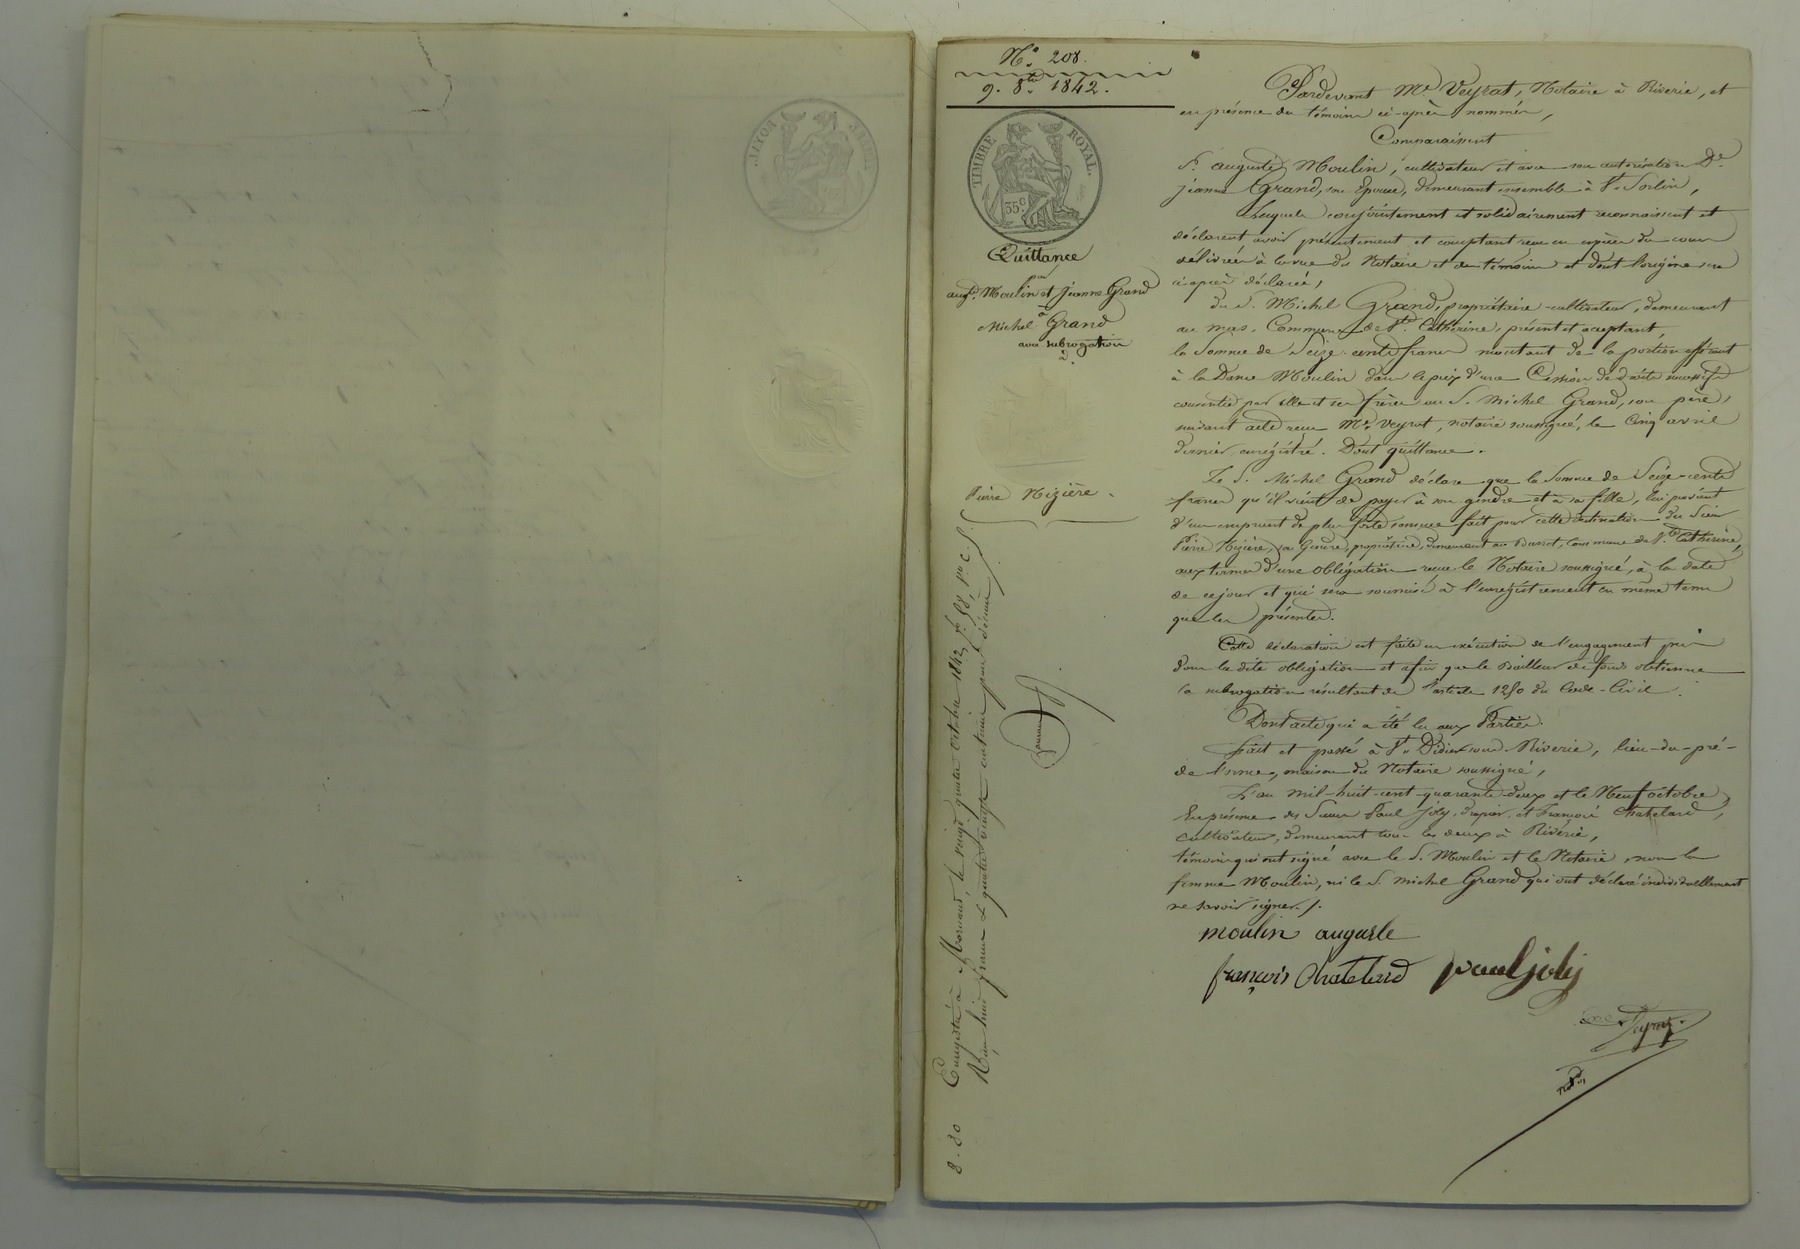 N.° 208.
9. 8.bre 1842.
TIMBRE ROYAL
35c.
Quittance
par
aug.te Moulin et Jeanne Grand
à
Michel Grand
avec subrogation
à
Pierre Nizière.
Enregistré à Mornant, le vingt quatre octobre 1842, f.° 58, r.° c. 5.
Reçu huit francs & quatre vingts centimes pour décime
8.80
Pardevant M.e Veyrat, Notaire à Riverie, et
en présence des témoins ci-après nommés,
Comparaissent
S.r auguste Moulin, cultivateur et avec son autorisation D.e
jeanne Grand, son épouse, demeurant ensemble à S.t Sorlin,
Lesquels conjointement et solidairement reconnaissent et
déclarent avoir présentement et comptant reçu en espèces du cours
délivrées à la vue du Notaire et des témoins et dont l'origine sera
ci-après déclarée,
du S. Michel Grand, propriétaire-cultivateur, demeurant
au mas, Commune de S.te Catherine, présent et acceptant,
la Somme de Seize-cents francs montant de la portion afférant
à la Dame Moulin dans le prix d'une Cession de droits successifs
consentie par elle et ses frères au S. Michel Grand, son père,
suivant acte reçu M.e Veyrat, notaire soussigné, le Cinq avril
dernier, enregistré. Dont quittance.
Le S. Michel Grand déclare que la Somme de Seize-cents
francs qu'il vient de payer à son gendre et à sa fille, lui provient
d'un emprunt de plus forte somme fait pour cette destination du Sieur
Pierre Nizière, son Gendre, propriétaire, demeurant au Basset, Commune de S.te Catherine,
aux termes d'une obligation reçue le Notaire soussigné, à la date
de ce jour et qui sera soumise à l'enregistrement en même tems
que les présentes.
Cette déclaration est faite en exécution de l'engagement pris
dans la dite obligation et afin que le Bailleur de fonds obtienne
la subrogation résultant de l'article 1250 du Code-Civil.
Dont acte qui a été lu aux Parties.
Fait et passé à S.t Didier sous Riverie, lieu-du-pré-
de l'orme, maison du Notaire soussigné,
L'an mil-huit-cent-quarante-deux et le Neuf octobre,
En présence des Sieurs Paul Joly, drapier, et François Chatelard,
cultivateur, demeurant tous les deux à Riverie,
témoins qui ont signé avec le S. Moulin et le Notaire, non la
femme Moulin, ni le S. Michel Grand qui ont déclaré individuellement
ne savoir signer./.
moulin auguste
françois Chatelard paul joly
Veyrat
not.re